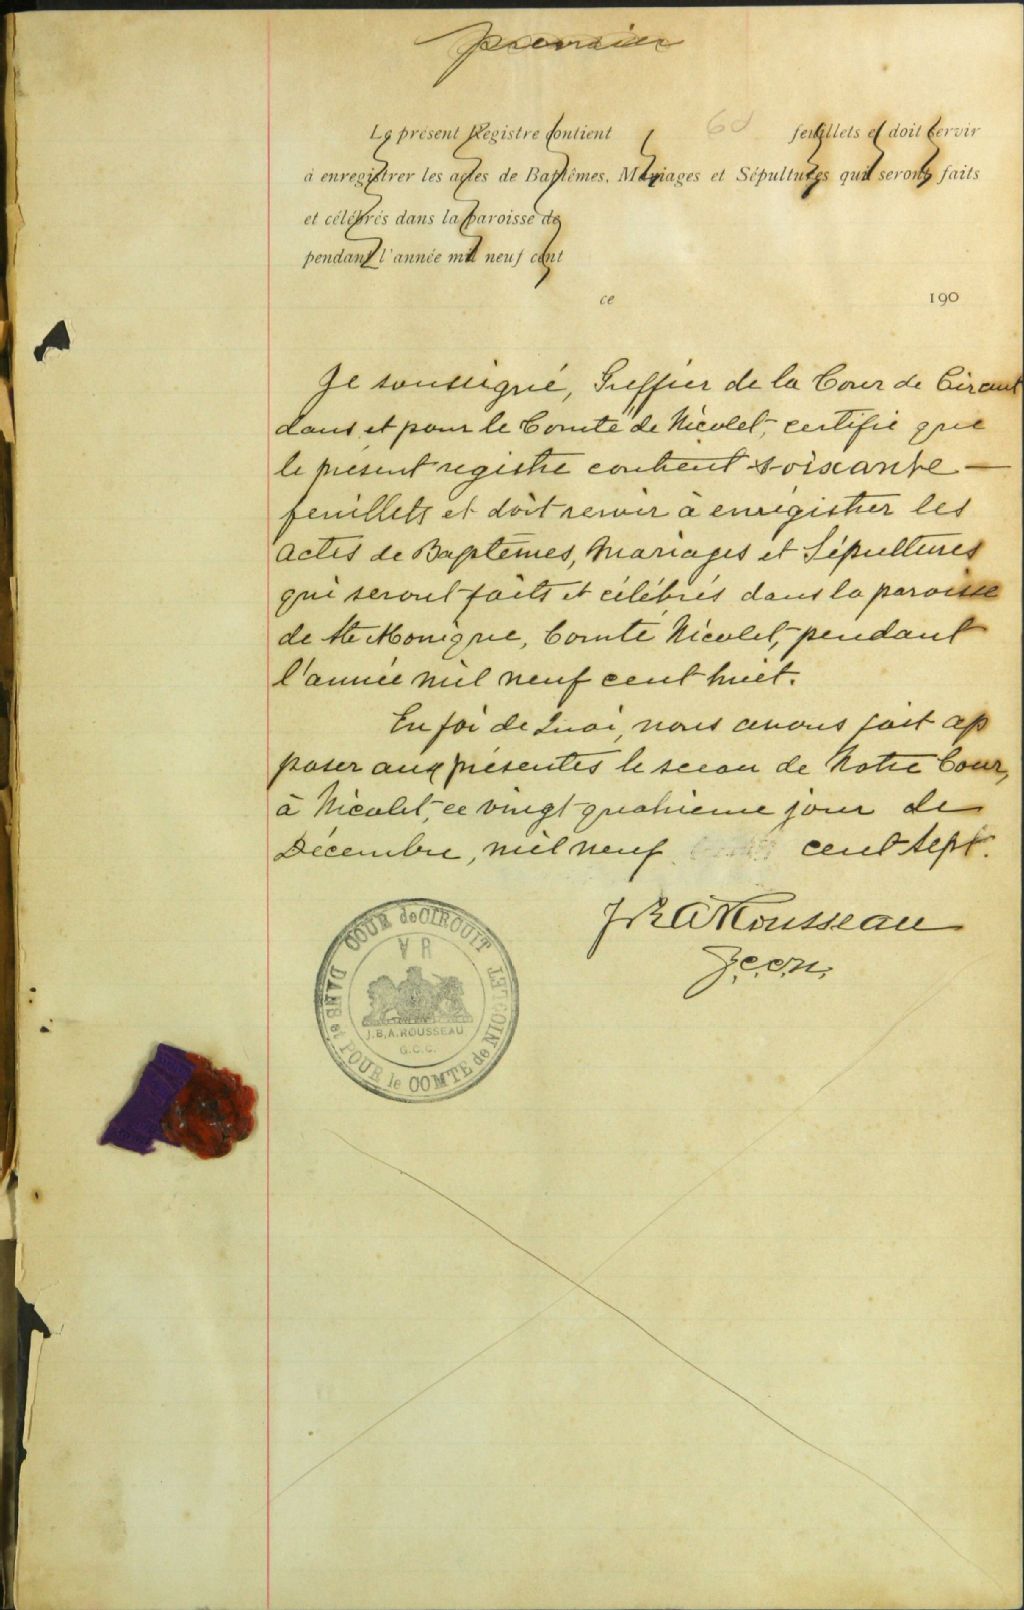 premier
Le présent Registre contient 60 feuillets et doit servir
à enregistrer les actes de Baptêmes, Mariages et Sépultures qui seront faits
et célébrés dans la paroisse de
pendant l'année mil neuf cent
ce 190
Je soussigné, Greffier de la Cour de Circuit
dans et pour le Comté de Nicolet, certifie que
le présent registre contient soixante —
feuillets et doit servir à enrégistrer les
actes de Baptêmes, Mariages et Sépultures
qui seront faits et célébrés dans la paroisse
de Ste Monique, Comté Nicolet, pendant
l'année mil neuf cent huit.
En foi de Quoi, nous avons fait ap
poser aux présentes le sceau de Notre Cour,
à Nicolet, ce vingt-quatrième jour de
Décembre, mil neuf cent sept.
J B A Rousseau
G.C.C.N.
COUR de CIRCUIT
DANS et POUR le COMTE de NICOLET
V R
J.B.A. ROUSSEAU
G.C.C.